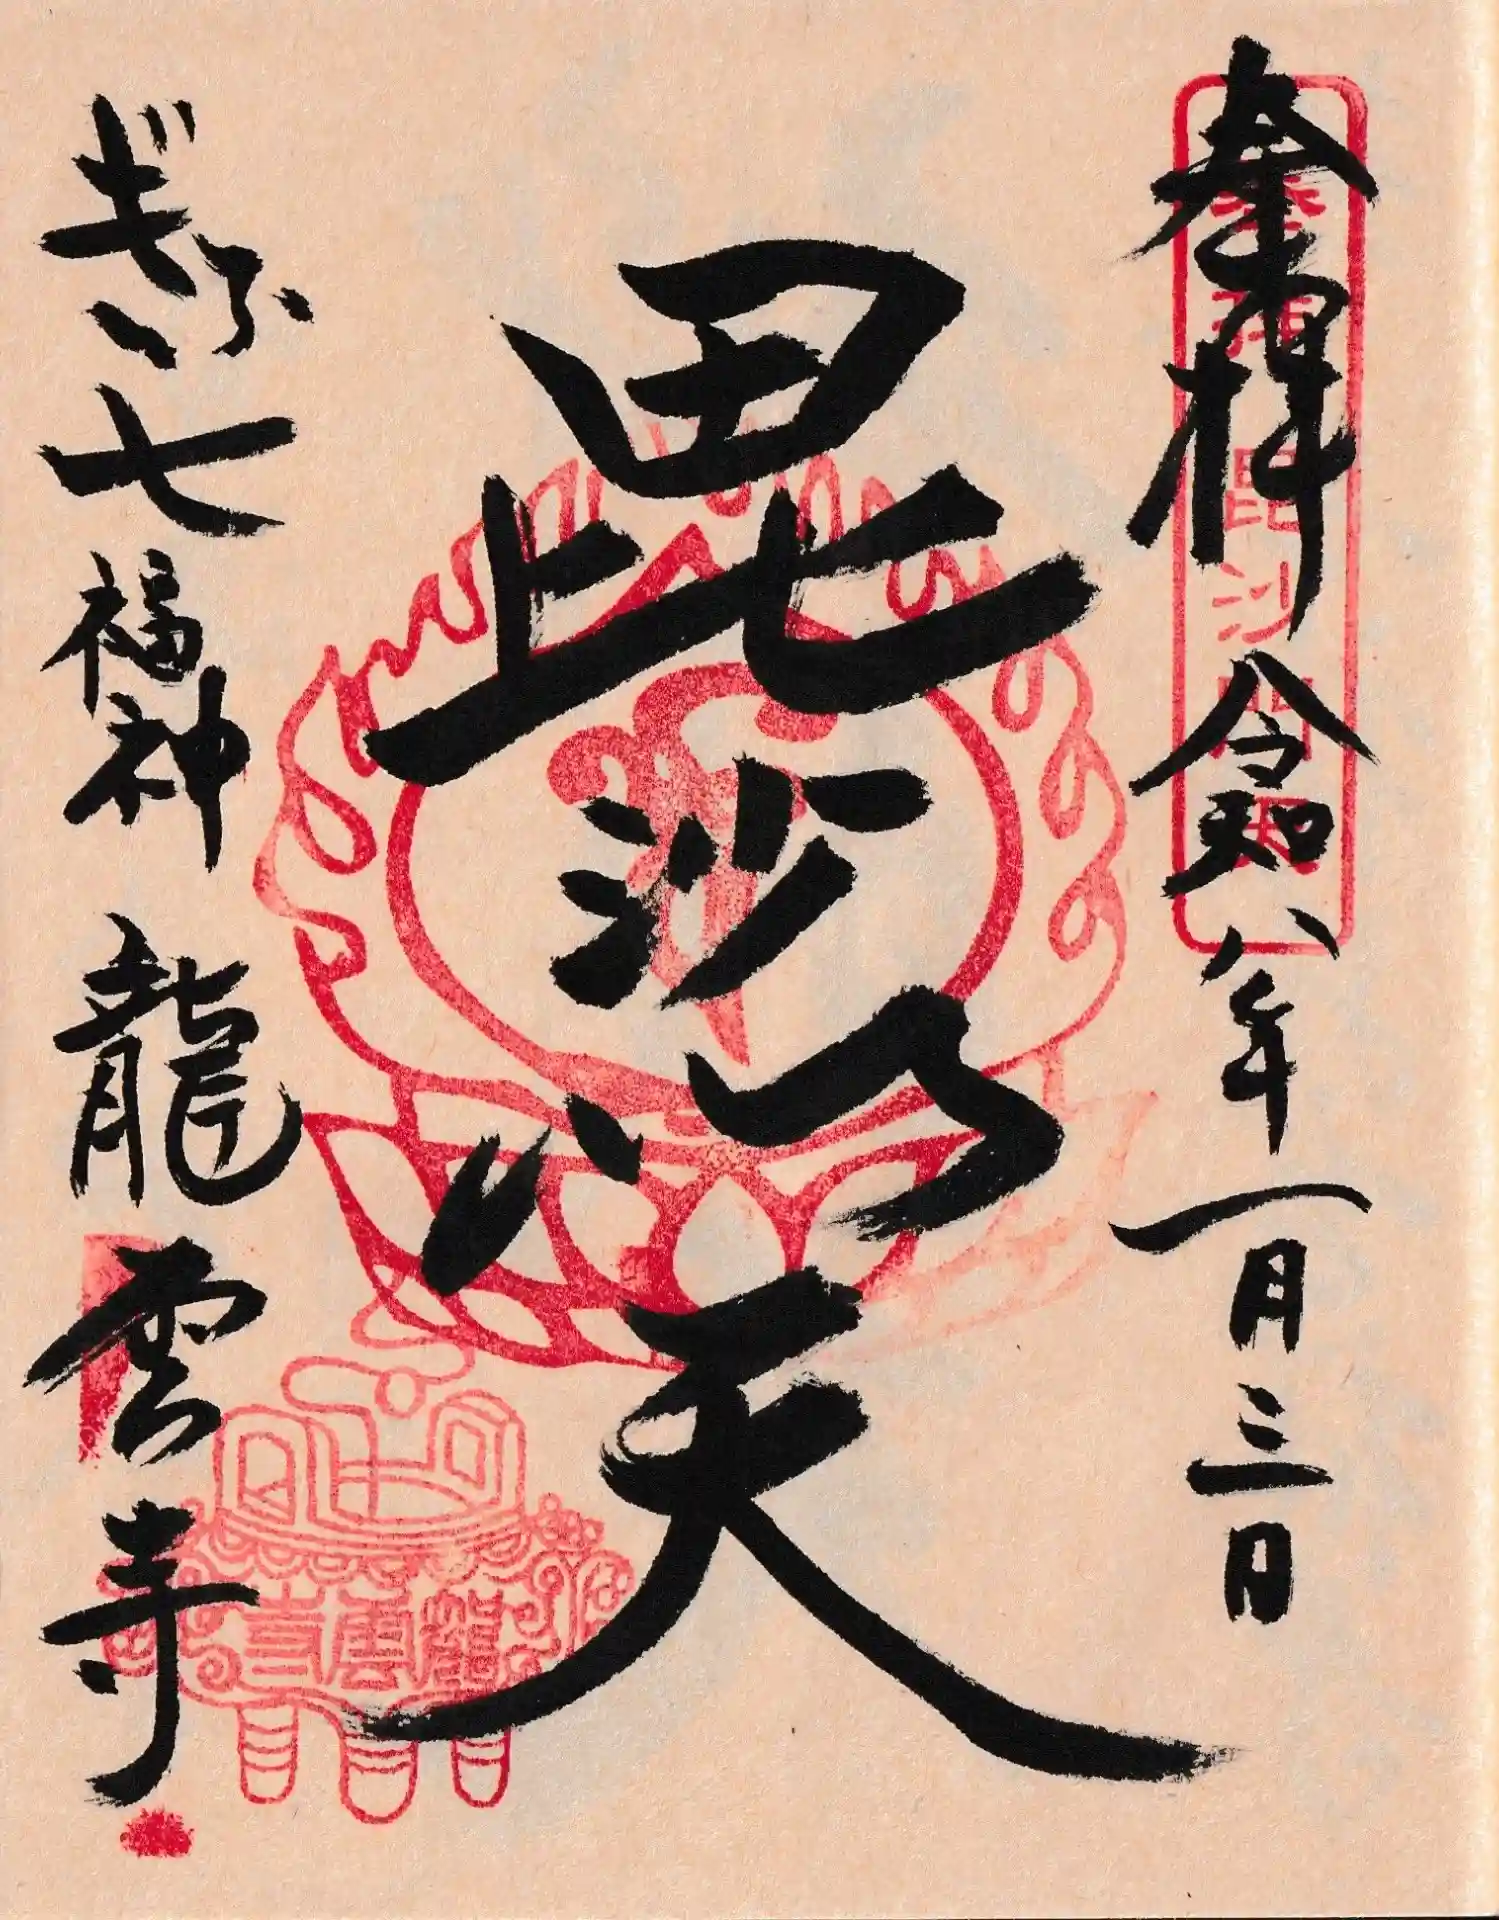 奉拝 令和八年一月三日
毘沙門天
毘沙門天
ぎふ七福神 龍雲寺
龍雲寺